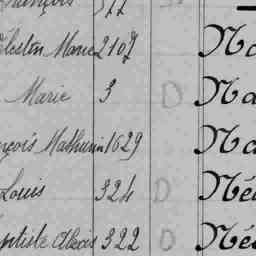 François 377
élestin Marie 2107 Na
Marie 3 D Na
nçois Mathurin 1629 Na
Louis 324 D Né
aptiste Alexis 322 D Né